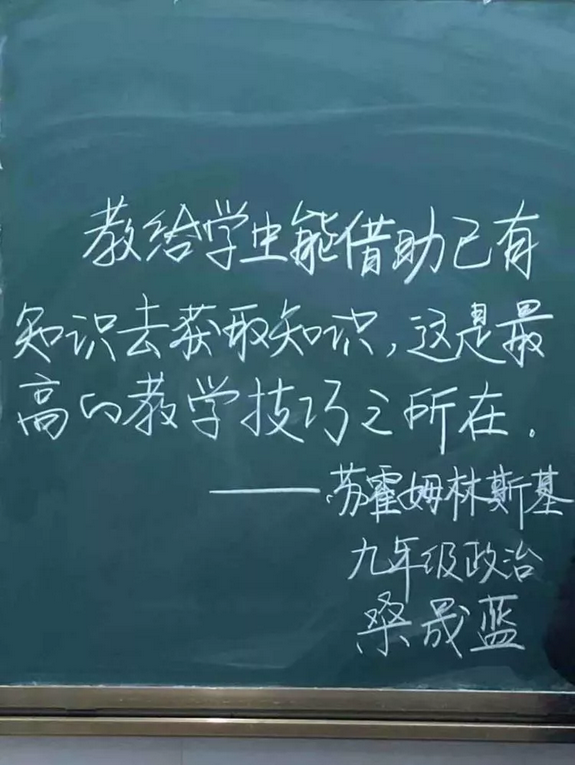 教给学生能借助已有
知识去获取知识，这是最
高的教学技巧之所在．
——苏霍姆林斯基
九年级政治
桑晟蓝